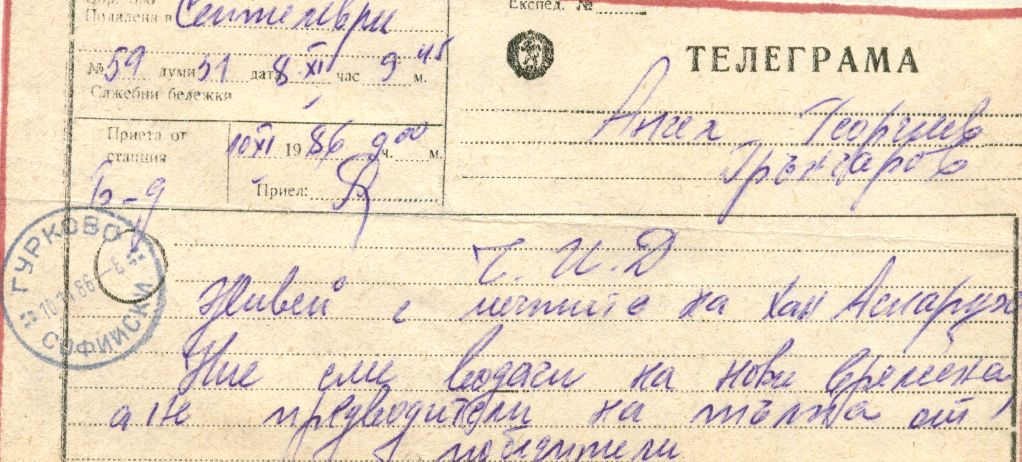 Подадена в Септември
Експед. №
№ 59 думи 31 дата 8 XI час 9 45 м.
Служебни бележки
ТЕЛЕГРАМА
Приета от станция
10 XI 1986 9 ч. 00 м.
Приел:
Б-д
Ангел Георгиев
Грънчарово
ГУРКОВО
10.11.86
СОФИЙСКИ
Ч. И. Д
Живей с мечтите на хан Аспарух
Ние сме водачи на нови времена,
а не предводители на тълпа от
победители